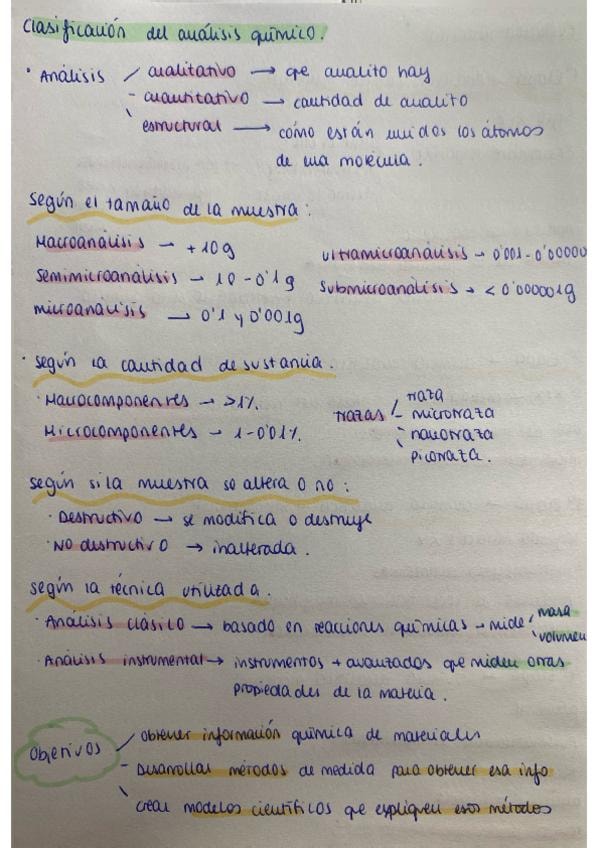 Clasificación del análisis químico!
· Análisis cualitativo → que analito hay
- cuantitativo → cantidad de analito
estructural → cómo están unidos los átomos
de una molécula.
según el tamaño de la muestra:
Macroanálisis → +10g
Semimicroanálisis → 10-0'1g
microanálisis → 0'1 y 0'001g
Ultramicroanálisis → 0'001-0'00000
Submicroanálisis → <0'000001g
· según la cantidad de sustancia.
· Macrocomponentes → >1%.
Microcomponentes → 1-0'01%
trazas traza
microtraza
nanotraza
picotraza.
según si la muestra se altera o no:
· Destructivo → se modifica o destruye
· No destructivo → inalterada.
según la técnica utilizada.
· Análisis clásico → basado en reacciones químicas → mide masa
volumen
· Análisis instrumental → instrumentos + avanzados que miden otras
propiedades de la materia.
Objetivos
obtener información química de materiales
- Desarrollar métodos de medida para obtener esa info
crear modelos científicos que expliquen esos métodos